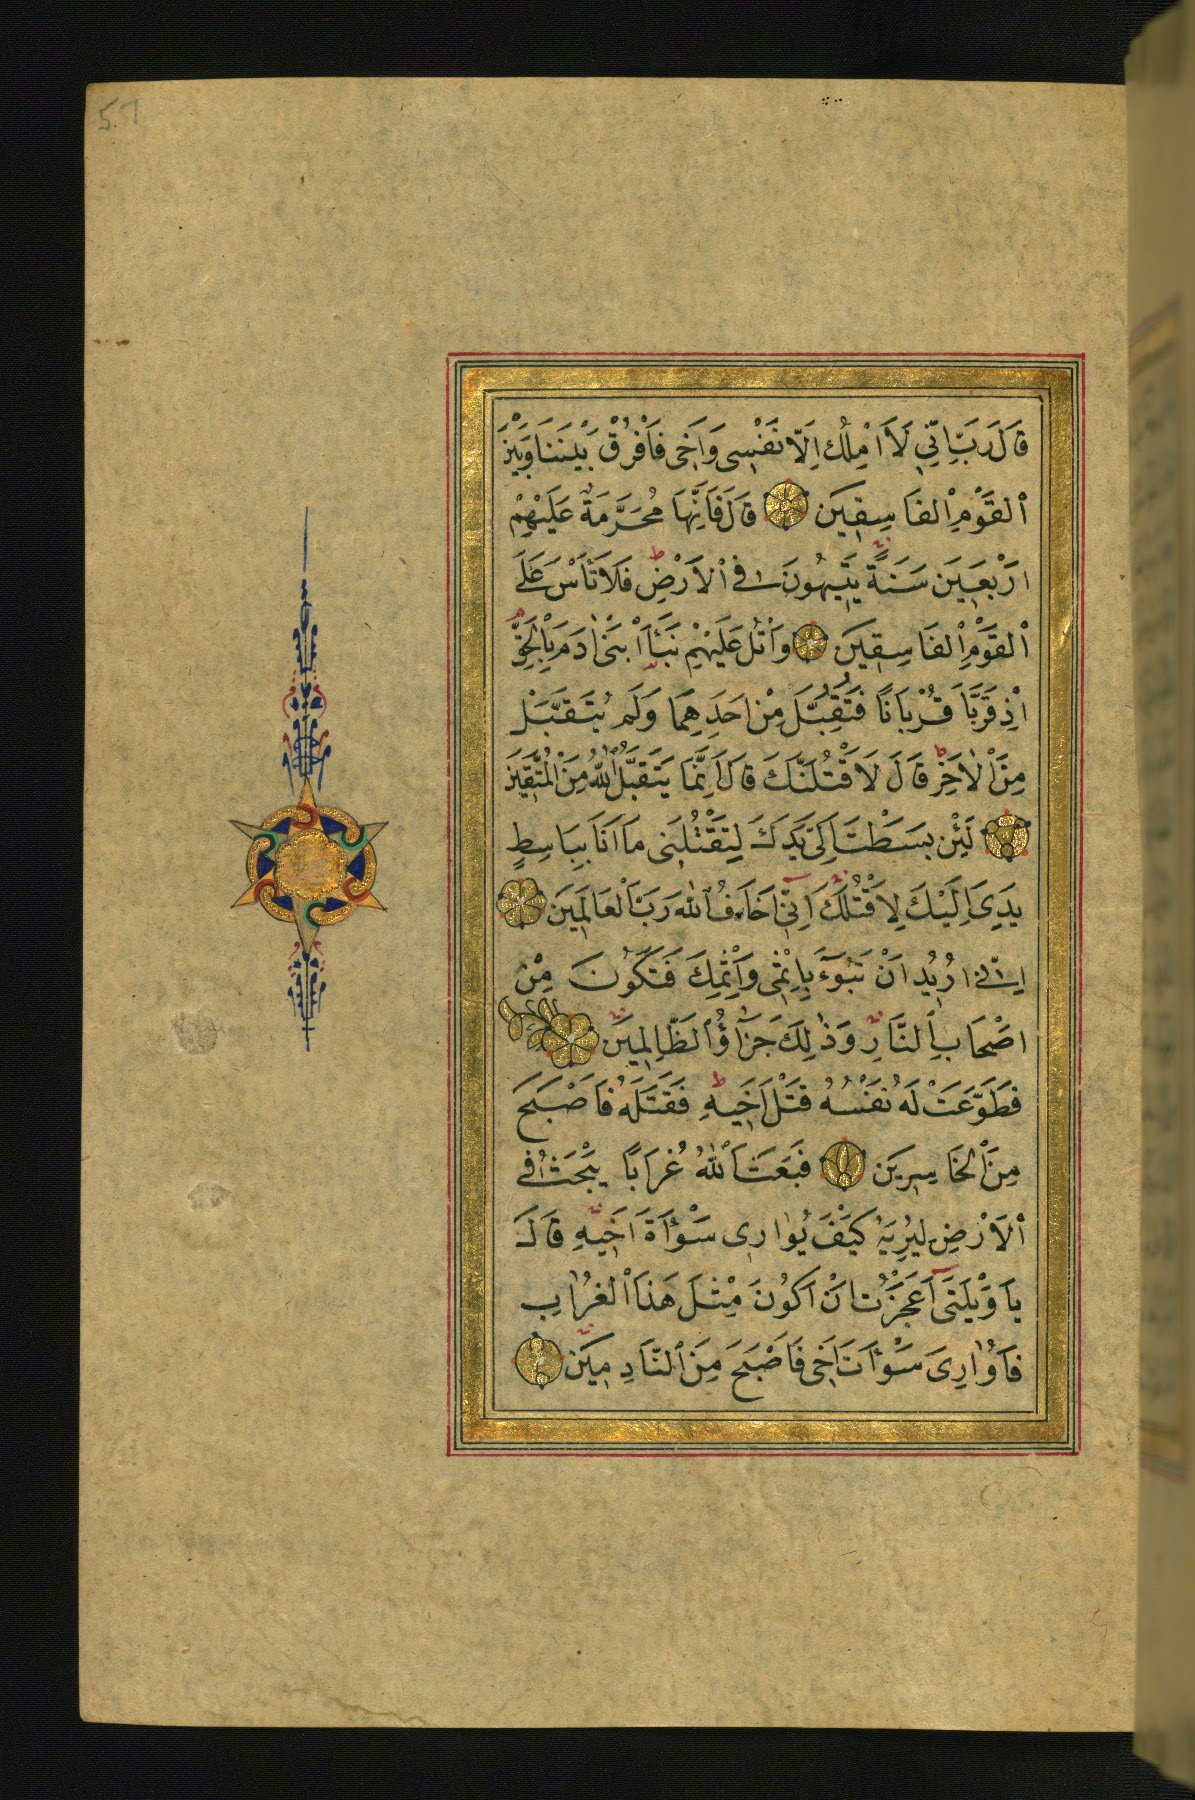 57
قَالَ رَبِّ اِنِّي لَا اَمْلِكُ اِلَّا نَفْسِى وَاَخِى فَافْرُقْ بَيْنَنَا وَبَيْنَ
ٱلْقَوْمِ ٱلْفَاسِقِينَ قَالَ فَاِنَّهَا مُحَرَّمَةٌ عَلَيْهِمْ
اَرْبَعِينَ سَنَةً يَتِيهُونَ فِى ٱلْاَرْضِ فَلَا تَأْسَ عَلَى
ٱلْقَوْمِ ٱلْفَاسِقِينَ وَاتْلُ عَلَيْهِمْ نَبَاَ ابْنَىْ اٰدَمَ بِالْحَقِّ
اِذْ قَرَّبَا قُرْبَانًا فَتُقُبِّلَ مِنْ اَحَدِهِمَا وَلَمْ يُتَقَبَّلْ
مِنَ ٱلْاٰخَرِ قَالَ لَاَقْتُلَنَّكَ قَالَ اِنَّمَا يَتَقَبَّلُ ٱللّٰهُ مِنَ ٱلْمُتَّقِينَ
لَئِنْ بَسَطْتَ اِلَىَّ يَدَكَ لِتَقْتُلَنِى مَا اَنَا بِبَاسِطٍ
يَدِىَ اِلَيْكَ لِاَقْتُلَكَ اِنِّى اَخَافُ ٱللّٰهَ رَبَّ ٱلْعَالَمِينَ
اِنِّى اُرِيدُ اَنْ تَبُوءَ بِاِثْمِى وَاِثْمِكَ فَتَكُونَ مِنْ
اَصْحَابِ ٱلنَّارِ وَذٰلِكَ جَزَاؤُ ٱلظَّالِمِينَ
فَطَوَّعَتْ لَهُ نَفْسُهُ قَتْلَ اَخِيهِ فَقَتَلَهُ فَاَصْبَحَ
مِنَ ٱلْخَاسِرِينَ فَبَعَثَ ٱللّٰهُ غُرَابًا يَبْحَثُ فِى
ٱلْاَرْضِ لِيُرِيَهُ كَيْفَ يُوَارِى سَوْاَةَ اَخِيهِ قَالَ
يَا وَيْلَتٰى اَعَجَزْتُ اَنْ اَكُونَ مِثْلَ هٰذَا ٱلْغُرَابِ
فَاُوَارِىَ سَوْاَتَ اَخِى فَاَصْبَحَ مِنَ ٱلنَّادِمِينَ